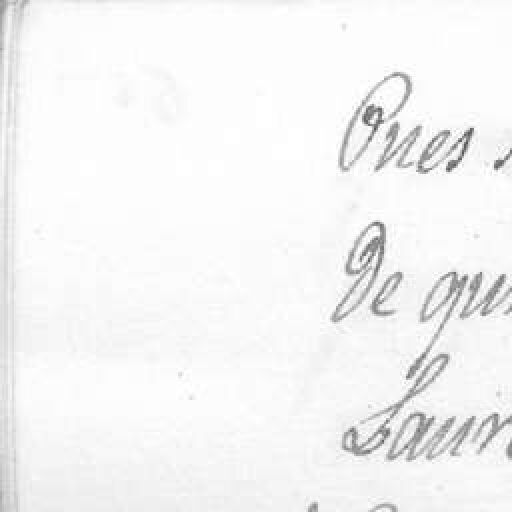 Ones
De qu
Laur